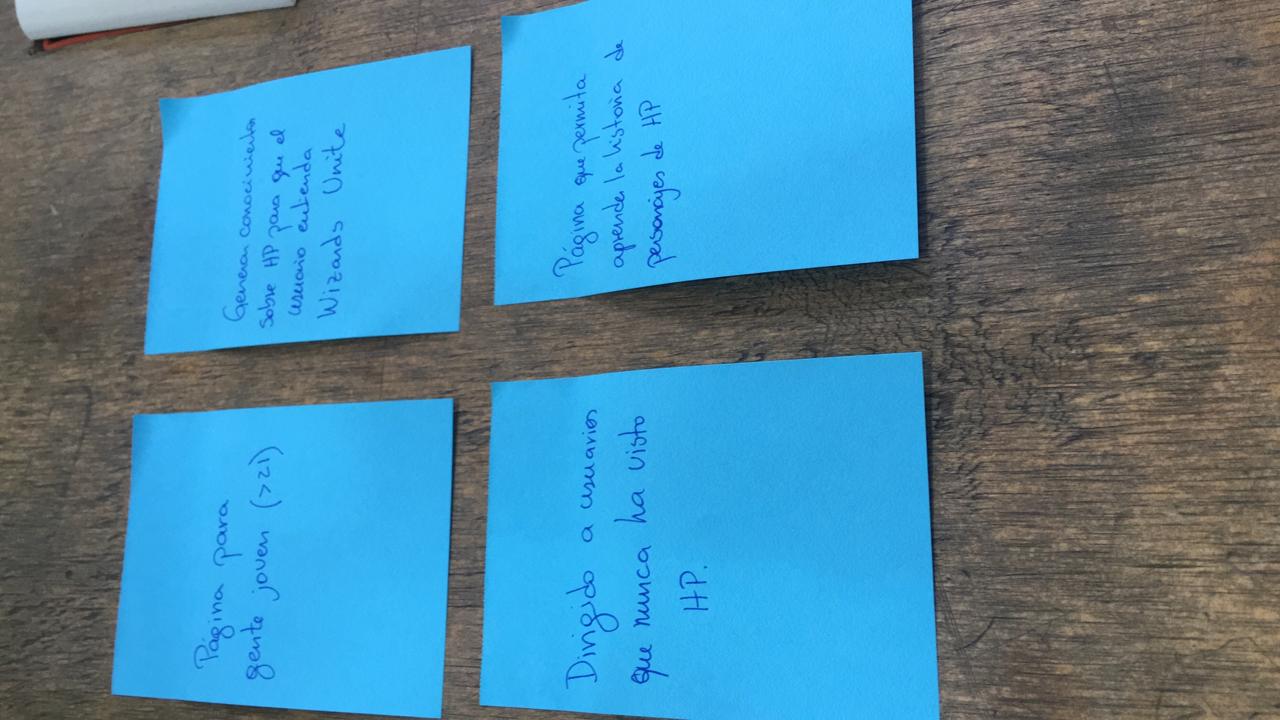 Página para
gente joven (>21)
Generar conocimientos
sobre HP para que el
usuario entienda
Wizards Unite
Dirigido a usuarios
que nunca ha visto
HP.
Página que permita
aprender la historia de
personajes de HP